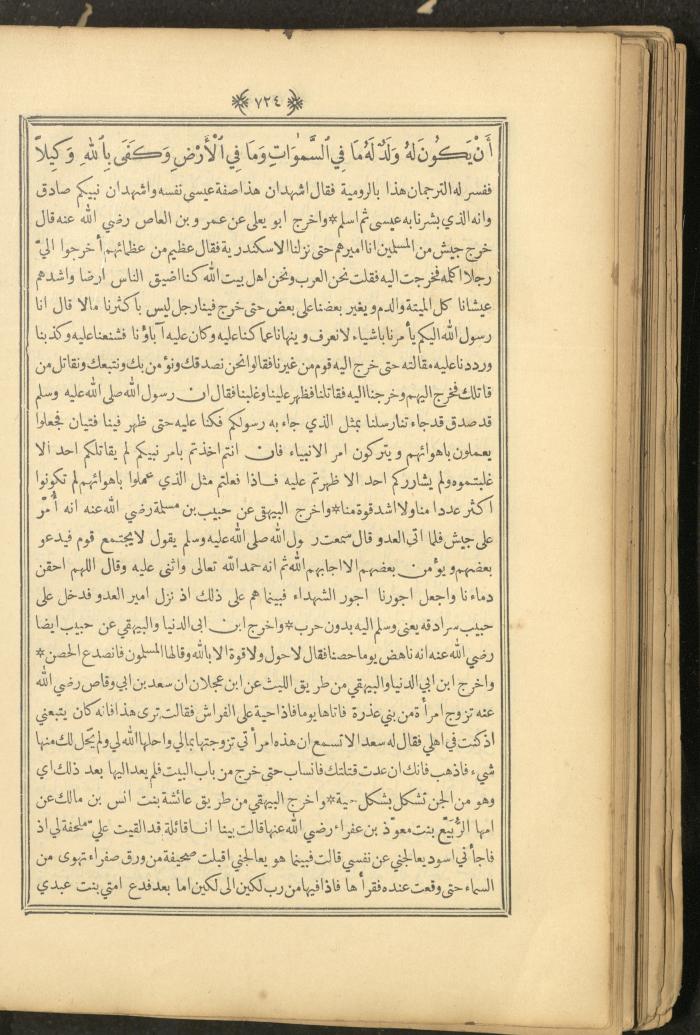 ٧٢٤
أَنْ يَكُونَ لَهُ وَلَدٌ لَهُ مَا فِي ٱلسَّمٰوَاتِ وَمَا فِي ٱلْأَرْضِ وَكَفَى بِٱللهِ وَكِيلاً
ففسر له الترجمان هذا بالرومية فقال اشهد ان هذا صفة عيسى نفسه واشهد ان نبيكم صادق
وانه الذي بشرنا به عيسى ثم اسلم * واخرج ابو يعلى عن عمرو بن العاص رضي الله عنه قال
خرج جيش من المسلمين انا اميرهم حتى نزلنا الاسكندرية فقال عظيم من عظمائهم أخرجوا اليّ
رجلا اكلمه فخرجت اليه فقلت نحن العرب ونحن اهل بيت الله كنا اضيق الناس ارضا واشدهم
عيشا نا كل الميتة والدم ويغير بعضنا على بعض حتى خرج فينا رجل ليس باكثرنا مالا قال انا
رسول الله اليكم يأمرنا باشياء لا نعرف وينهانا عما كنا عليه وكان عليه آباؤنا فشنعنا عليه وكذبنا
ورددنا عليه مقالته حتى خرج اليه قوم من غيرنا فقالوا نحن نصدقك ونؤمن بك ونتبعك ونقاتل من
قاتلك فخرج اليهم وخرجنا اليه فقاتلنا فظهر علينا وغلبنا فقال ان رسول الله صلى الله عليه وسلم
قد صدق قد جاءتنا رسلنا بمثل الذي جاء به رسولكم فكنا عليه حتى ظهر فينا فتيان فجعلوا
يعملون باهوائهم ويتركون امر الانبياء فان انتم اخذتم بامر نبيكم لم يقاتلكم احد الا
غلبتموه ولم يشارركم احد الا ظهرتم عليه فاذا فعلتم مثل الذي عملوا باهوائهم لم تكونوا
اكثر عددا منا ولا اشد قوة منا * واخرج البيهقي عن حبيب بن مسلمة رضي الله عنه انه أُمّر
على جيش فلما اتى العدو قال سمعت ر ول الله صلى الله عليه وسلم يقول لا يجتمع قوم فيدعو
بعضهم ويؤمن بعضهم الا اجابهم الله ثم انه حمد الله تعالى واثنى عليه وقال اللهم احقن
دماءنا واجعل اجورنا اجور الشهداء فبينما هم على ذلك اذ نزل امير العدو فدخل على
حبيب سرادقه يعني وسلم اليه بدون حرب * واخرج ابن ابي الدنيا والبيهقي عن حبيب ايضا
رضي الله عنه انه ناهض يوما حصنا فقال لا حول ولا قوة الا بالله وقالها المسلمون فانصدع الحصن *
واخرج ابن ابي الدنيا والبيهقي من طريق الليث عن ابن عجلان ان سعد بن ابي وقاص رضي الله
عنه تزوج امرأة من بني عذرة فاتاها يوما فاذا حية على الفراش فقالت ترى هذا فانه كان يتبعني
اذ كنت في اهلي فقال له سعد الا تسمع ان هذه امرأتي تزوجتها بمالي واحلها الله لي ولم يحل لك منها
شيء فاذهب فانك ان عدت قتلتك فانساب حتى خرج من باب البيت فلم يعد اليها بعد ذلك اي
وهو من الجن تشكل بشكل حية * واخرج البيهقي من طريق عائشة بنت انس بن مالك عن
امها الرُّبَيِّع بنت معوّذ بن عفراء رضي الله عنها قالت بينا انا قائلة قد القيت عليّ ملحفة لي اذ
فاجأني اسود يعالجني عن نفسي قالت فبينما هو يعالجني اقبلت صحيفة من ورق صفراء تهوى من
السماء حتى وقعت عنده فقرأها فاذا فيها من رب لكين الى لكين اما بعد فدع امتي بنت عبدي